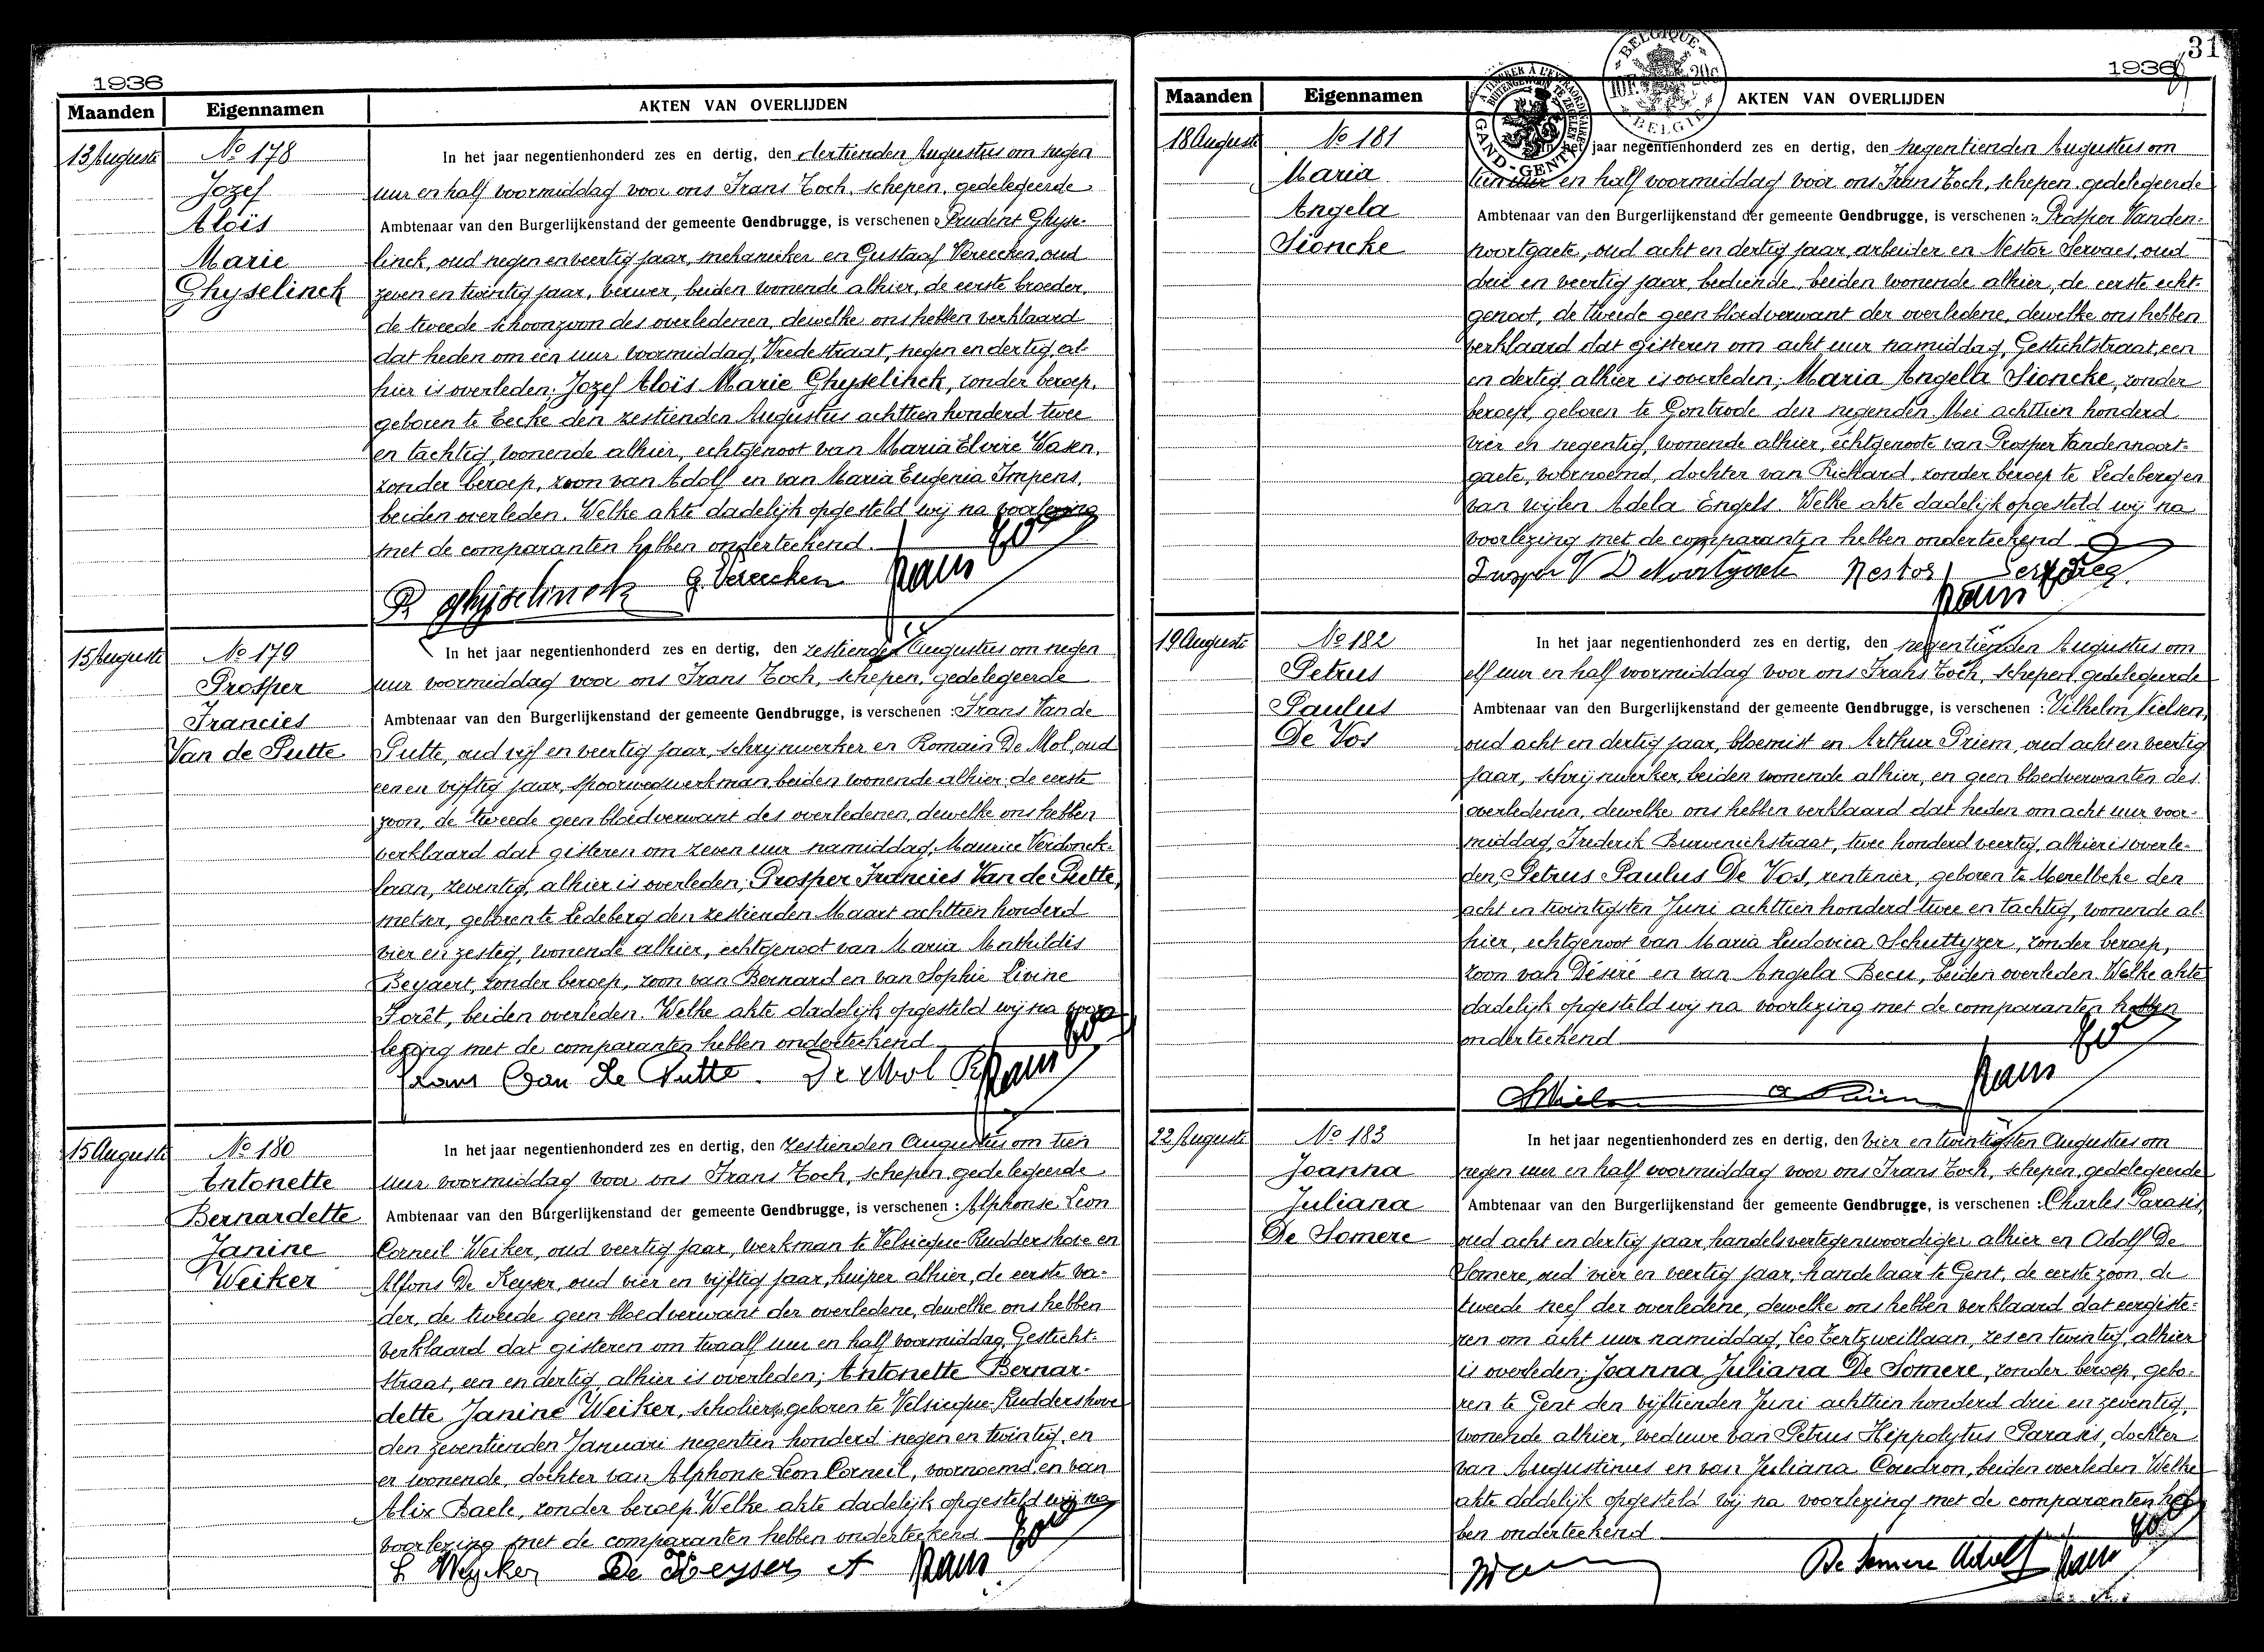 1936
Maanden Eigennamen AKTEN VAN OVERLIJDEN
13 Auguste
No 178
Jozef
Aloïs
Marie
Ghyselinck
In het jaar negentienhonderd zes en dertig, den dertienden Augustus om negen
uur en half voormiddag voor ons Frans Toch, schepen, gedelegeerde
Ambtenaar van den Burgerlijkenstand der gemeente Gendbrugge, is verschenen : Prudent Ghyse-
linck, oud negen en veertig jaar, mekanieker en Gustaaf Vereecken, oud
zeven en twintig jaar, verwer, beiden wonende alhier, de eerste broeder,
de tweede schoonzoon des overledenen, dewelke ons hebben verklaard
dat heden om een uur voormiddag, Vredestraat, negen en dertig, al-
hier is overleden; Jozef Aloïs Marie Ghyselinck, zonder beroep,
geboren te Eecke den zestienden Augustus achttien honderd twee
en tachtig, wonende alhier, echtgenoot van Maria Elvire Wasen,
zonder beroep, zoon van Adolf en van Maria Eugenia Impens,
beiden overleden. Welke akte dadelijk opgesteld wij na voorlezing
met de comparanten hebben onderteekend.
P. Ghyselinck G. Vereecken
15 Auguste
No 179
Prosper
Francies
Van de Putte
In het jaar negentienhonderd zes en dertig, den zestienden Augustus om negen
uur voormiddag voor ons Frans Toch, schepen, gedelegeerde
Ambtenaar van den Burgerlijkenstand der gemeente Gendbrugge, is verschenen : Frans Van de
Putte, oud vijf en veertig jaar, schrijnwerker en Romain De Mol, oud
een en vijftig jaar, spoorwegwerkman, beiden wonende alhier, de eerste
zoon, de tweede geen bloedverwant des overledenen, dewelke ons hebben
verklaard dat gisteren om zeven uur namiddag, Maurice Verdonck-
laan, zeventig, alhier is overleden; Prosper Francies Van de Putte,
metser, geboren te Ledeberg den zestienden Maart achttien honderd
vier en zestig, wonende alhier, echtgenoot van Maria Mathildis
Beyaert, zonder beroep, zoon van Bernard en van Sophie Livine
Forêt, beiden overleden. Welke akte dadelijk opgesteld wij na voor-
lezing met de comparanten hebben onderteekend.
Frans Van De Putte. De Mol R
15 Auguste
No 180
Antonette
Bernardette
Janine
Weiker
In het jaar negentienhonderd zes en dertig, den zestienden Augustus om tien
uur voormiddag voor ons Frans Toch, schepen, gedelegeerde
Ambtenaar van den Burgerlijkenstand der gemeente Gendbrugge, is verschenen : Alphonse Leon
Corneil Weiker, oud veertig jaar, werkman te Velsicque-Ruddershove en
Alfons De Keyser, oud vier en vijftig jaar, kuiper alhier, de eerste va-
der, de tweede geen bloedverwant der overledene, dewelke ons hebben
verklaard dat gisteren om twaalf uur en half voormiddag, Gesticht-
straat, een en dertig, alhier is overleden; Antonette Bernar-
dette Janine Weiker, scholierz, geboren te Velsicque-Ruddershove
den zeventienden Januari negentien honderd negen en twintig, en
er wonende, dochter van Alphonse Leon Corneil, voornoemd, en van
Alix Baele, zonder beroep. Welke akte dadelijk opgesteld wij na
voorlezing met de comparanten hebben onderteekend
L Weyker De Keyser A
31
1936
Maanden Eigennamen AKTEN VAN OVERLIJDEN
BELGIQUE
BELGIE
GAND-GENT
18 Auguste
No 181
Maria
Angela
Sioncke
In het jaar negentienhonderd zes en dertig, den negentienden Augustus om
tien uur en half voormiddag voor ons Frans Toch, schepen, gedelegeerde
Ambtenaar van den Burgerlijkenstand der gemeente Gendbrugge, is verschenen : Prosper Vanden-
noortgaete, oud acht en dertig jaar, arbeider en Nestor Servaes, oud
drie en veertig jaar, bediende, beiden wonende alhier, de eerste echt-
genoot, de tweede geen bloedverwant der overledene, dewelke ons hebben
verklaard dat gisteren om acht uur namiddag, Gestichtstraat, een
en dertig, alhier is overleden; Maria Angela Sioncke, zonder
beroep, geboren te Gontrode den negenden Mei achttien honderd
vier en negentig, wonende alhier, echtgenoote van Prosper Vandennoort-
gaete, voornoemd, dochter van Richard, zonder beroep te Ledeberg en
van wijlen Adela Engels. Welke akte dadelijk opgesteld wij na
voorlezing met de comparanten hebben onderteekend
Nestor
19 Auguste
No 182
Petrus
Paulus
De Vos
In het jaar negentienhonderd zes en dertig, den negentienden Augustus om
elf uur en half voormiddag voor ons Frans Toch, schepen, gedelegeerde
Ambtenaar van den Burgerlijkenstand der gemeente Gendbrugge, is verschenen : Vilhelm Nielsen,
oud acht en dertig jaar, bloemist en Arthur Priem, oud acht en veertig
jaar, schrijnwerker, beiden wonende alhier, en geen bloedverwanten des
overledenen, dewelke ons hebben verklaard dat heden om acht uur voor-
middag, Frederik Burvenichstraat, twee honderd veertig, alhier is overle-
den, Petrus Paulus De Vos, rentenier, geboren te Merelbeke den
acht en twintigsten Juni achttien honderd twee en tachtig, wonende al-
hier, echtgenoot van Maria Ludovica Schuttyzer, zonder beroep,
zoon van Désiré en van Angela Becu, beiden overleden. Welke akte
dadelijk opgesteld wij na voorlezing met de comparanten hebben
onderteekend
22 Auguste
No 183
Joanna
Juliana
De Somere
In het jaar negentienhonderd zes en dertig, den vier en twintigsten Augustus om
negen uur en half voormiddag voor ons Frans Toch, schepen, gedelegeerde
Ambtenaar van den Burgerlijkenstand der gemeente Gendbrugge, is verschenen : Charles Parasis,
oud acht en dertig jaar, handelsvertegenwoordiger alhier en Adolf De
Somere, oud vier en veertig jaar, handelaar te Gent, de eerste zoon, de
tweede neef der overledene, dewelke ons hebben verklaard dat eergiste-
ren om acht uur namiddag, Leo Tertzweillaan, zes en twintig, alhier
is overleden; Joanna Juliana De Somere, zonder beroep, gebo-
ren te Gent den vijftienden Juni achttien honderd drie en zeventig,
wonende alhier, weduwe van Petrus Hippolytus Parasis, dochter
van Augustinus en van Juliana Coudron, beiden overleden. Welke
akte dadelijk opgesteld wij na voorlezing met de comparanten heb-
ben onderteekend
De Somere Adolf